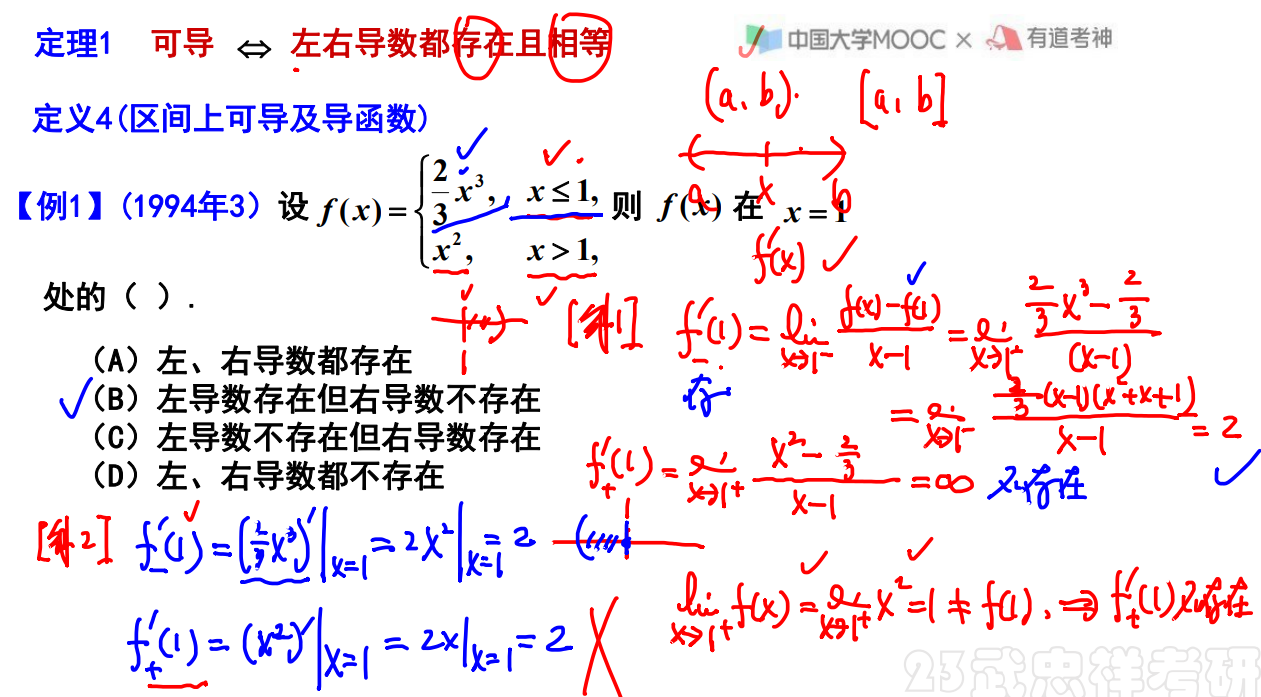 定理1 可导 ⇔ 左右导数都存在且相等
中国大学MOOC × 有道考神
(a, b). [a, b]
定义4(区间上可导及导函数)
a x b
【例1】(1994年3) 设 f(x) = { 2/3 x³, x ≤ 1, x², x > 1, 则 f(x) 在 x = 1
f'(x) ✓
处的( ).
(A)左、右导数都存在
(B)左导数存在但右导数不存在
(C)左导数不存在但右导数存在
(D)左、右导数都不存在
[解1] f'₋(1) = lim x→1⁻ (f(x)-f(1))/(x-1) = lim x→1⁻ (2/3 x³ - 2/3)/(x-1)
存
= lim x→1⁻ (2/3 (x-1)(x²+x+1))/(x-1) = 2
f'₊(1) = lim x→1⁺ (x² - 2/3)/(x-1) = ∞ 不存在
[解2] f'₋(1) = (2/3 x³)'|x=1 = 2x²|x=1 = 2
f'₊(1) = (x²)'|x=1 = 2x|x=1 = 2
lim x→1⁺ f(x) = lim x→1⁺ x² = 1 ≠ f(1), ⇒ f'₊(1) 不存在
23武忠祥考研